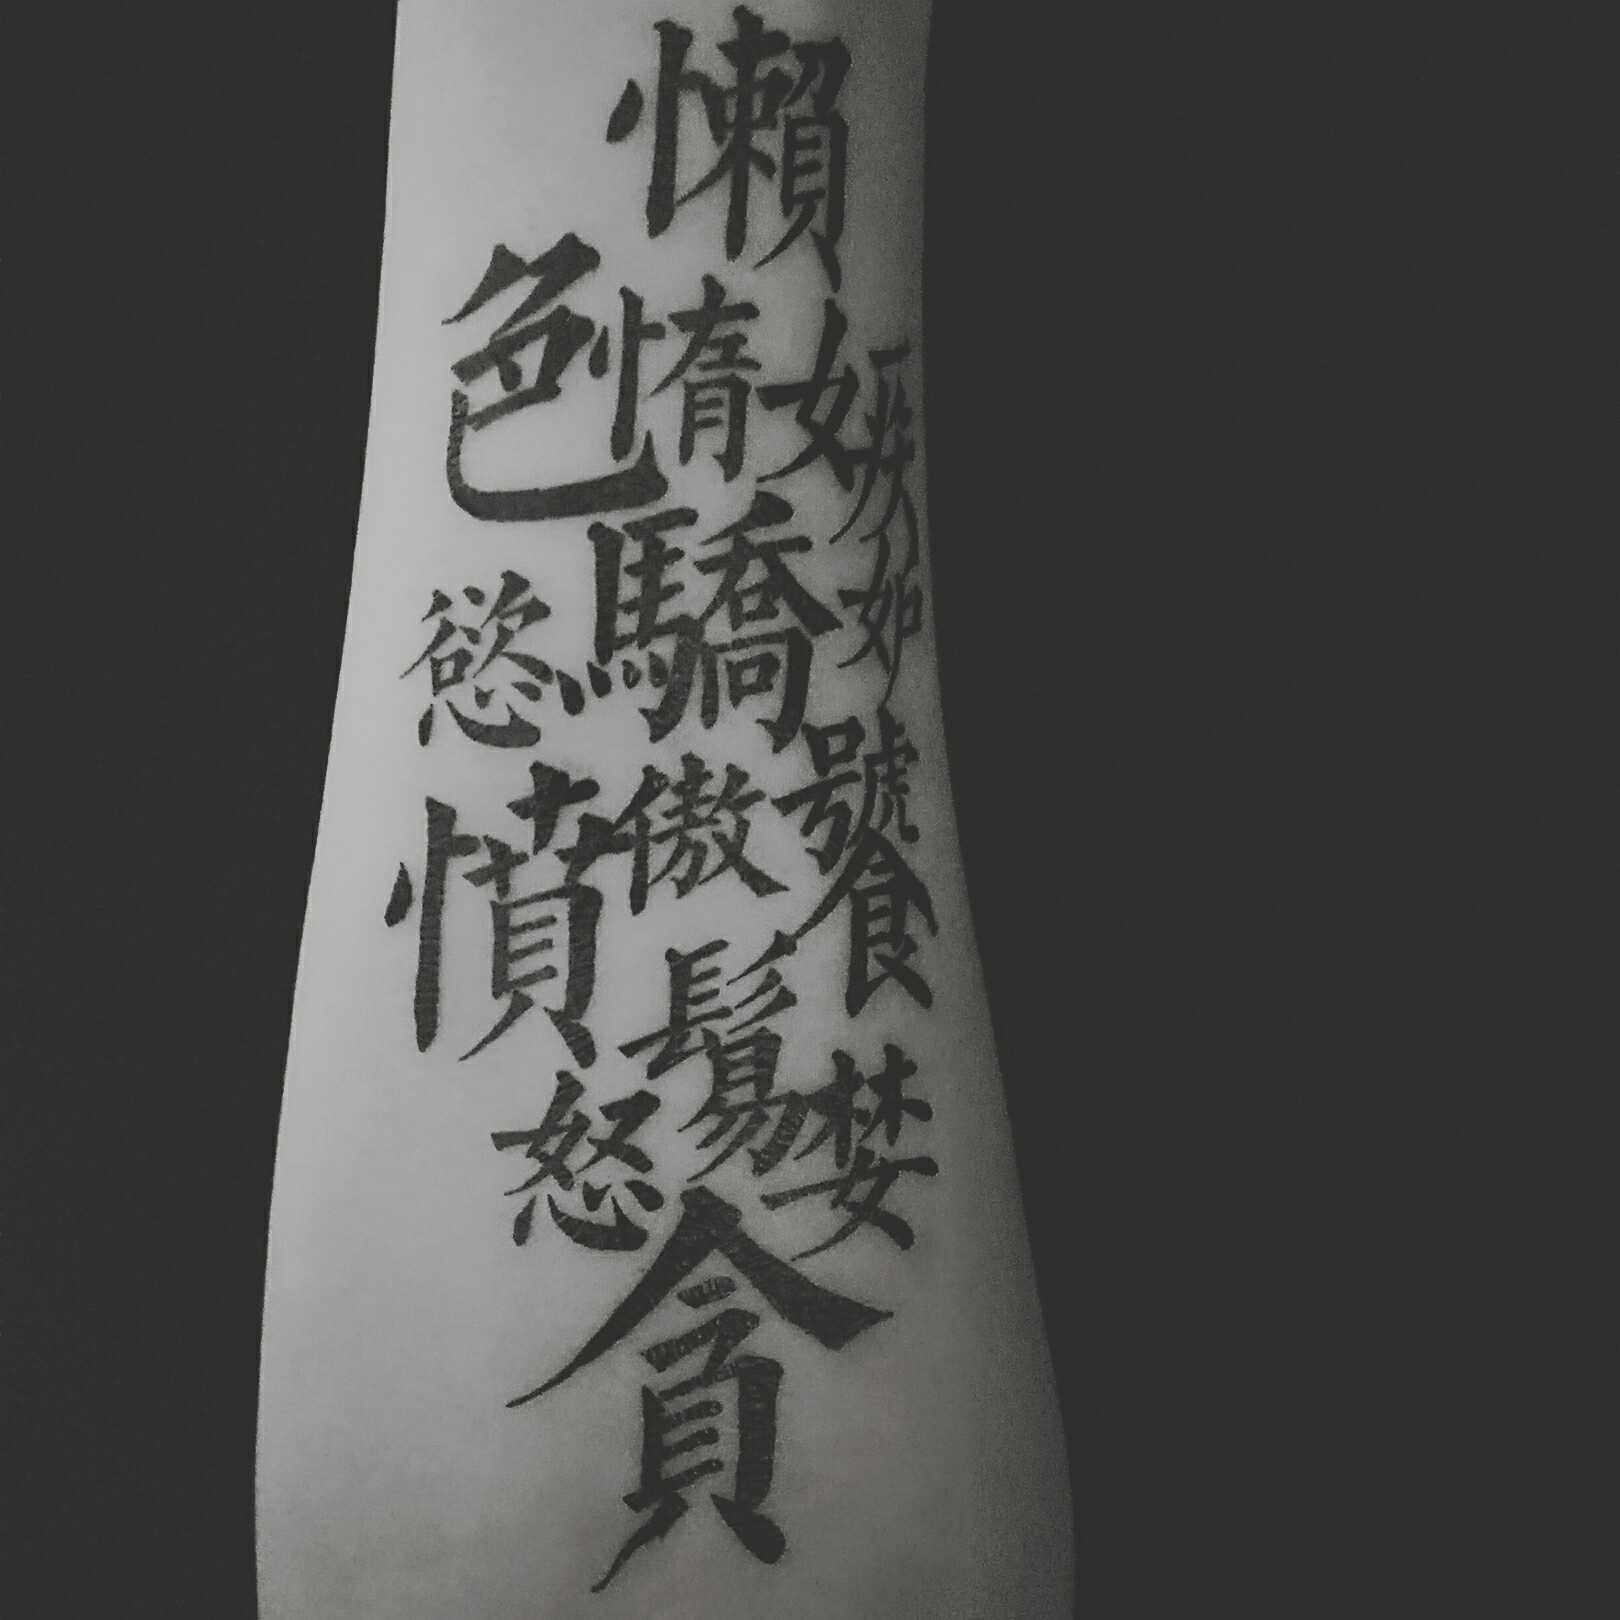 懶惰
色慾
嫉妒
驕傲
饕鬄
憤怒
貪婪